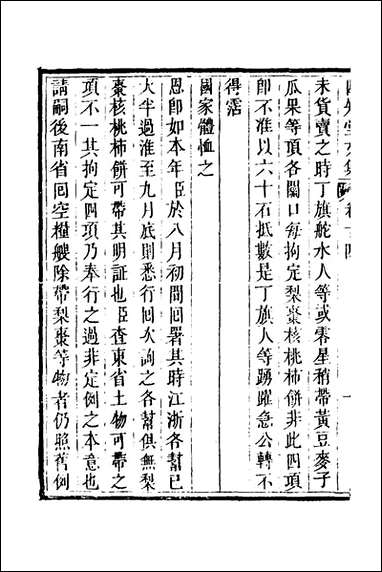 未貨賣之時丁旗舵水人等或零星稍帶黃豆麥子
瓜果等項各關口每拘定梨棗核桃柿餅非此四項
卽不准以六十石抵數是丁旗人等踴躍急公轉不
得霑
國家體恤之
恩卽如本年臣於八月初間回署其時江浙各幫已
大半過淮至九月底則悉行回次詢之各幫俱無梨
棗核桃柿餅可帶其明証也臣查東省土物可帶之
項不一其拘定四項乃奉行之過非定例之本意也
請嗣後南省回空糧艘除帶梨棗等物者仍照舊例